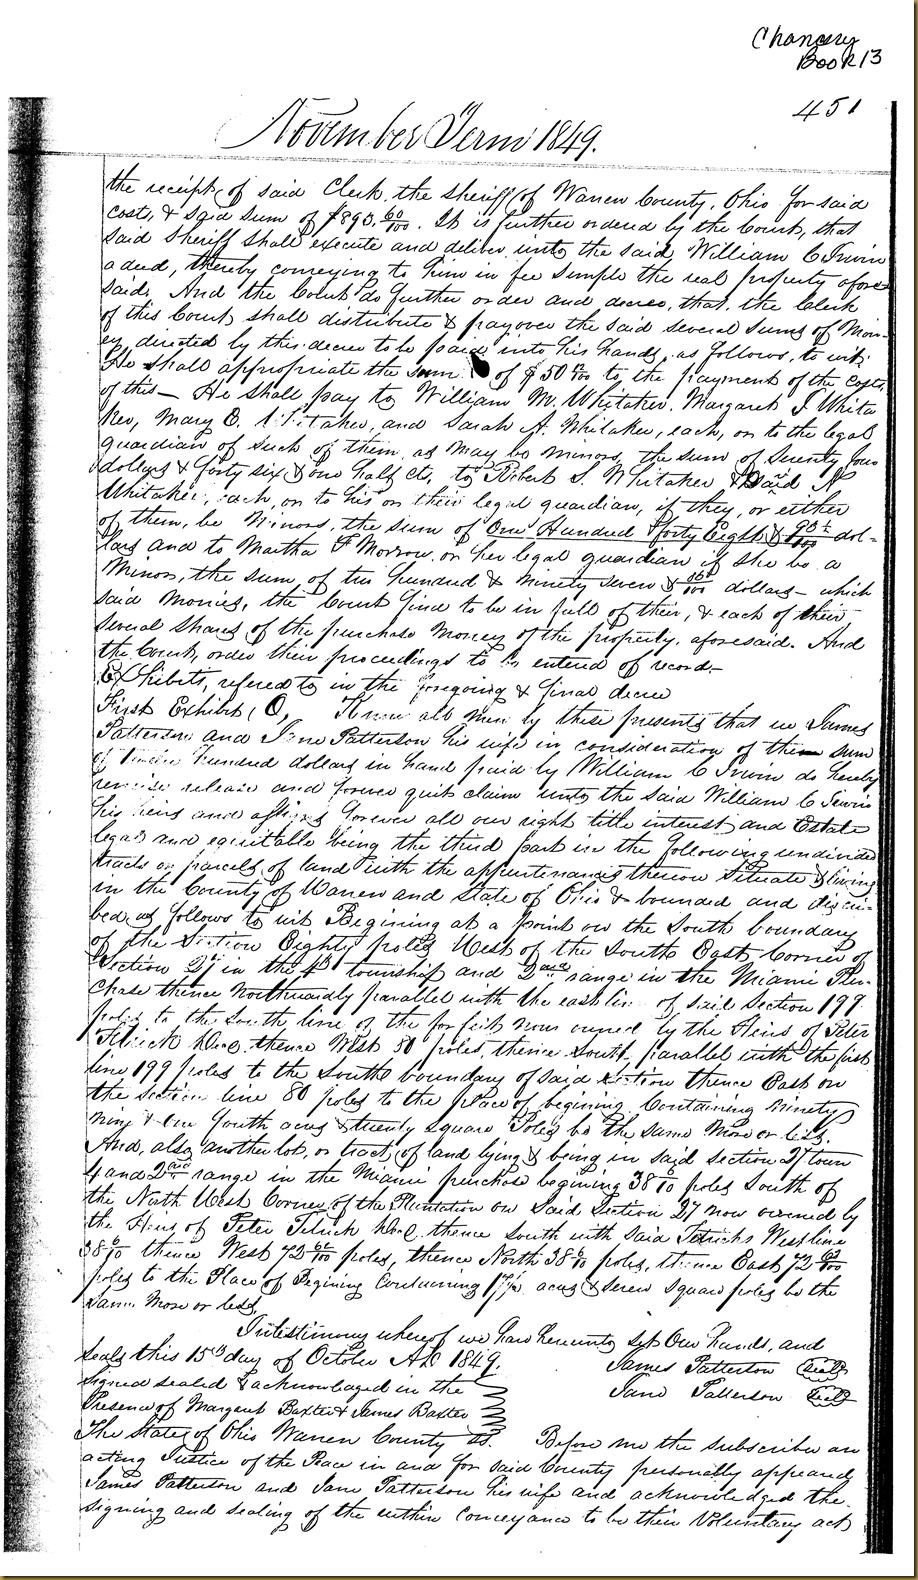 Chancery
Book 13
451
November Term 1849.
the receipt of said Clerk the Sheriff of Warren County, Ohio for said
costs, & said sum of $893.60/100. It is further ordered by the Court, that
said Sheriff shall execute and deliver unto the said William C Irwin
a deed, thereby conveying to him in fee simple the real property afore-
said. And the Court do further order and decree, that, the Clerk
of this Court, shall distribute & pay over the said several sums of Mon-
ey, directed by this decree to be paid into his hands, as follows, to wit:
He shall appropriate the sum of $50 to the payment of the costs
of this— He shall pay to William M. Whitaker, Margaret J Whita
ker, Mary E. Whitaker, and Sarah A. Whitaker, each, or to the legal
guardian of such of them, as may be minors, the sum of Seventy four
dollars & forty six & one half cts, to Robert S. Whitaker & David N
Whitaker, each, or to his or their legal guardian, if they, or either
of them, be Minors, the sum of One Hundred & forty Eight & 93/100 dol-
lars and to Martha F Morrow or her legal guardian if she be a
Minor, the sum of two hundred & ninety seven & /100 dollars— which
said monies, the Court find to be in full of their, & each of their
several shares of the purchase money of the property, aforesaid. And
the Court, order their proceedings to be entered of record—
Exhibits, refered to in the foregoing & final decree
First Exhibit, O, Know all men by these presents that we James
Patterson and Jane Patterson his wife in consideration of the sum
of hundred dollars in hand paid by William C Irwin do hereby
remise release and forever quit claim unto the said William C Irwin
his heirs and assigns forever all our right title interest and Estate
legal and equitable being the third part in the following undivided
tracts or parcels of land with the appurtenances thereon Situate & living
in the County of Warren and State of Ohio & bounded and discri-
bed as follows to wit Begining at a point on the South boundary
of the Section Eighty poles West of the South East Corner of
Section 27 in the 4th township and 2nd range in the Miami Pur-
chase thence Northwardly parallel with the east line of said Section 199
poles to the South line of the now owned by the Heirs of Peter
Tetrick Decd thence West 80 poles, thence South parallel with the first
line 199 poles to the South boundary of said Section thence East on
the section line 80 poles to the place of begining Containing Ninety
nine & One fourth acres & twenty square Poles be the same more or less.
And also another lot, or tract of land lying & being in said section 27 town
4 and 2nd range in the Miami purchase begining 38 6/10 poles South of
the North West Corner of the Plantation on said Section 27 now owned by
the Heirs of Peter Tetrick Decd thence south with said Tetricks West line
38 6/10 thence West 72 62/100 poles, thence North 38 6/10 poles, thence East 72 62/100
poles to the Place of Begining Containing 17 acres & seven square poles be the
same More or less
In testimony whereof we have hereunto set Our hands, and
seals this 15th day of October AD 1849.
James Patterson (seal)
Signed sealed & acknowledged in the
Jane Patterson (seal)
Presence of Margaret Baxter & James Baxter
The State of Ohio Warren County ss. Before me the subscriber an
acting Justice of the Peace in and for said County personally appeared
James Patterson and Jane Patterson his wife and acknowledged the
signing and sealing of the within conveyance to be their Voluntary act